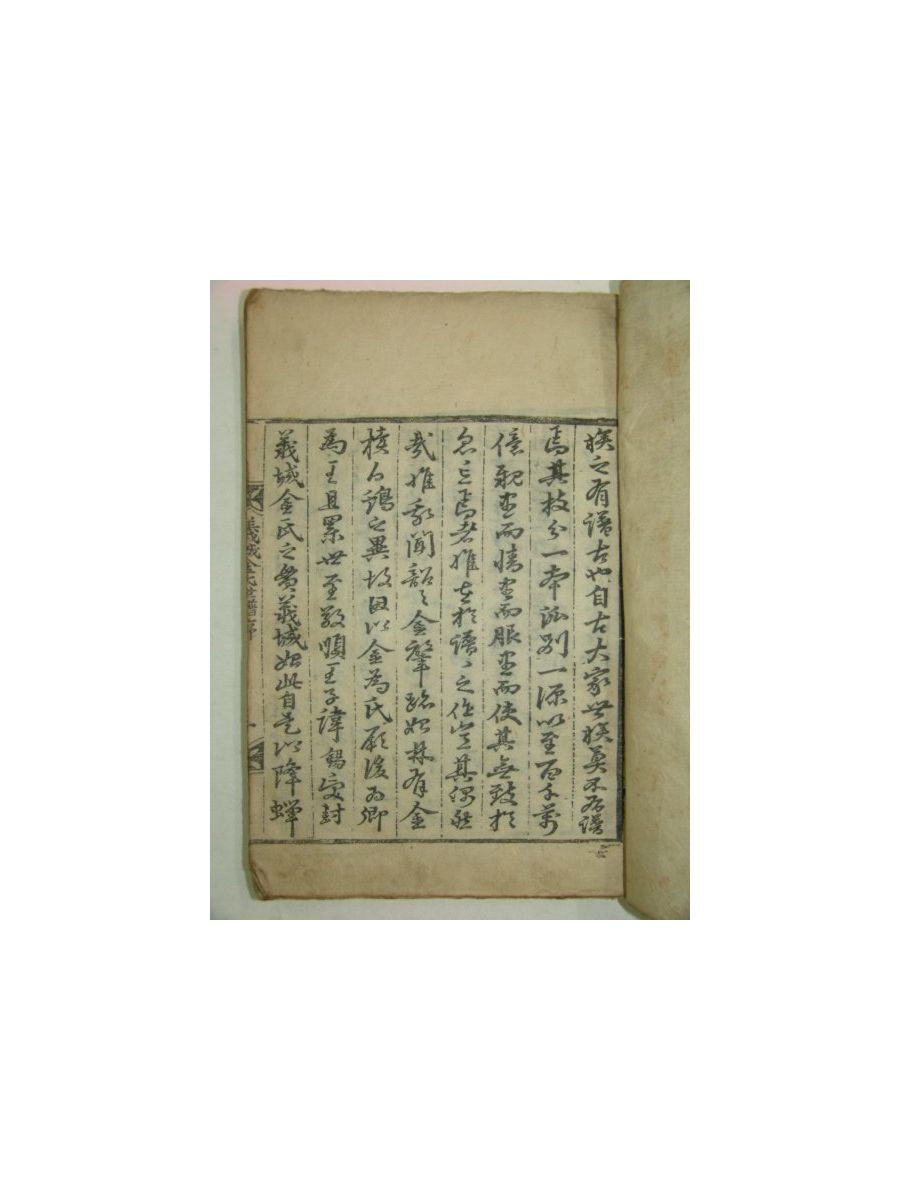 族之有譜古也自古大家世族莫不有譜
焉其枝分一本派別一源以至百千萬
億親盡而情盡而服盡而使其無致於
忽忘焉者惟在於譜〻之作豈其偶然
哉惟我聞韶〻金肇跡始林有金
櫝白鷄之異故因以金爲氏厥後爲卿
爲王且累世至敬順王子諱錫受封
義城金氏之貫義城始此自是以降蟬
義城金氏世譜序